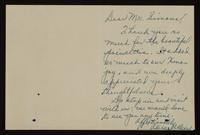 Dear Mr. Timmons,
Thank you so
much for the beautiful
poinsettia. It added
so much to our Xmas
joy, and we deeply
appreciated your
thoughtfulness.
Do stop in and visit
with us, we would love
to see you any time.